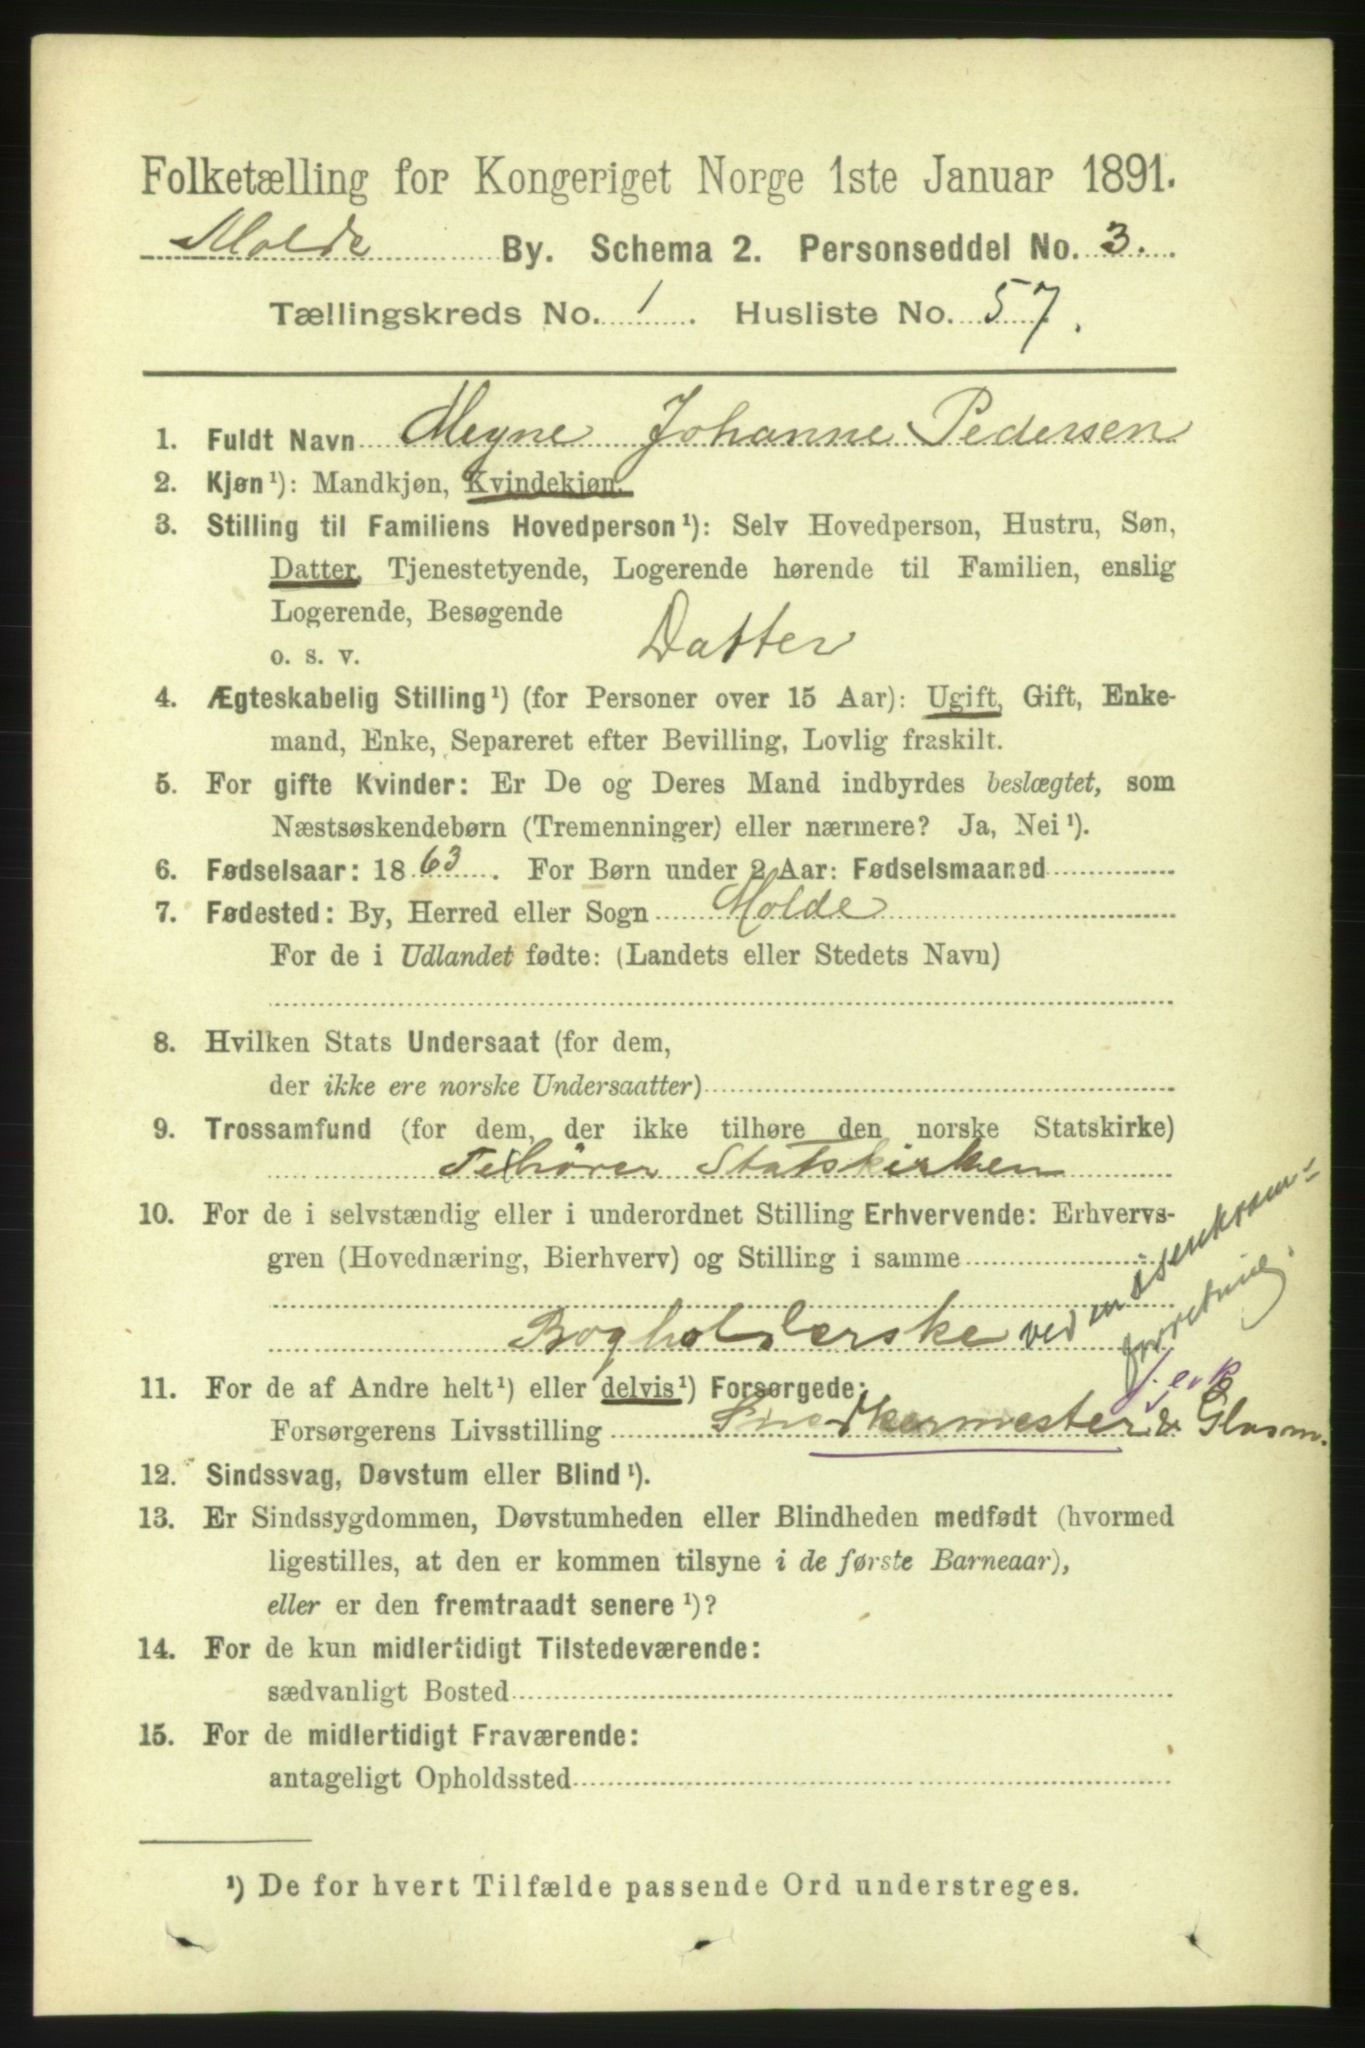 Folketælling for Kongeriget Norge 1ste Januar 1891.
Molde By. Schema 2. Personseddel No. 3.
Tællingskreds No. 1. Husliste No. 57.
1. Fuldt Navn Megne Johanne Pedersen
2. Kjøn¹): Mandkjøn, Kvindekjøn.
3. Stilling til Familiens Hovedperson¹): Selv Hovedperson, Hustru, Søn,
Datter, Tjenestetyende, Logerende hørende til Familien, enslig
Logerende, Besøgende
o. s. v. Datter
4. Ægteskabelig Stilling¹) (for Personer over 15 Aar): Ugift, Gift, Enke-
mand, Enke, Separeret efter Bevilling, Lovlig fraskilt.
5. For gifte Kvinder: Er De og Deres Mand indbyrdes beslægtet, som
Næstsøskendebørn (Tremenninger) eller nærmere? Ja, Nei¹).
6. Fødselsaar: 1863. For Børn under 2 Aar: Fødselsmaaned
7. Fødested: By, Herred eller Sogn Molde
For de i Udlandet fødte: (Landets eller Stedets Navn)
8. Hvilken Stats Undersaat (for dem,
der ikke ere norske Undersaatter)
9. Trossamfund (for dem, der ikke tilhøre den norske Statskirke)
Tilhører Statskirken
10. For de i selvstændig eller i underordnet Stilling Erhvervende: Erhvervs-
gren (Hovednæring, Bierhverv) og Stilling i samme
Bogholderske ved en Isenkram-
forretning.
11. For de af Andre helt¹) eller delvis¹) Forsørgede:
Forsørgerens Livsstilling Snedkermester & Glasm.
12. Sindssvag, Døvstum eller Blind¹).
13. Er Sindssygdommen, Døvstumheden eller Blindheden medfødt (hvormed
ligestilles, at den er kommen tilsyne i de første Barneaar),
eller er den fremtraadt senere¹)?
14. For de kun midlertidigt Tilstedeværende:
sædvanligt Bosted
15. For de midlertidigt Fraværende:
antageligt Opholdssted
¹) De for hvert Tilfælde passende Ord understreges.